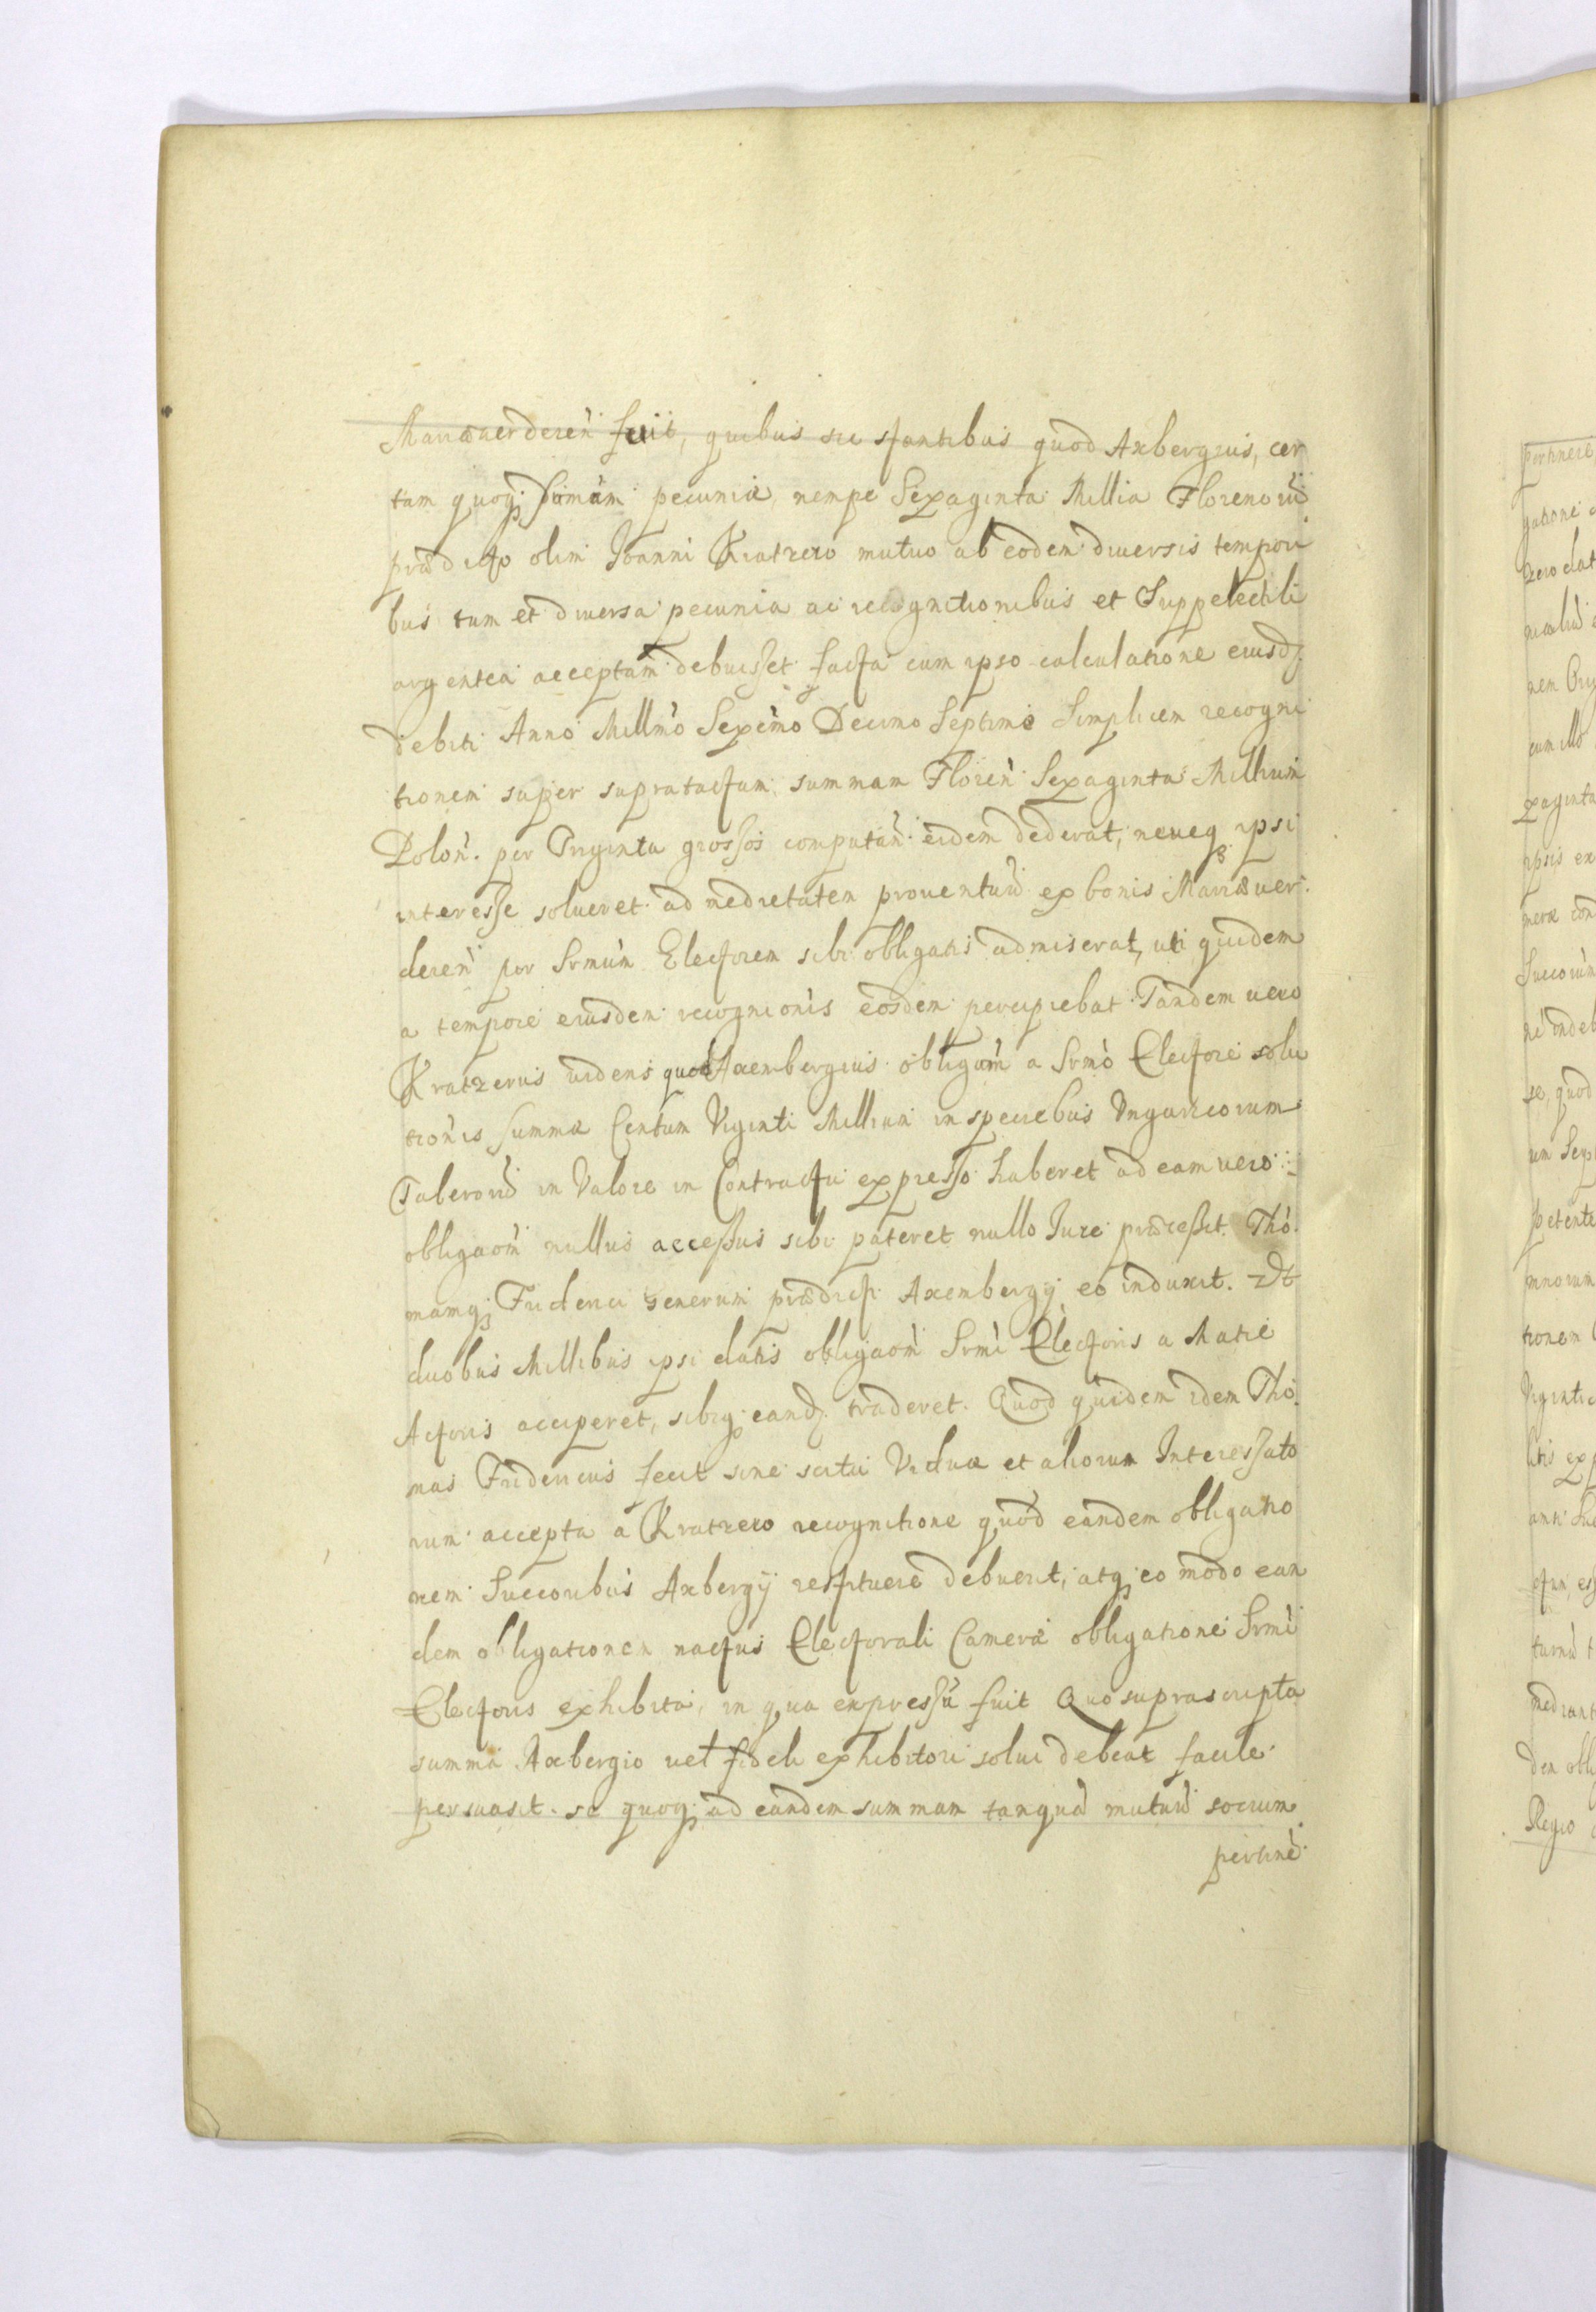 Mariæuerderen̄ fuit, quibus sic stantibus quod Axbergius, cer
tam quoq; sum̄am pecuniæ nempe Sexaginta Millia Florenorū
prædicto olim Joanni Kratzero mutuo ab eodem diuersis tempori
bus tum et diuersa pecunia ac recognitionibus et Suppelectili
argentea acceptam debuisset facta cum ipso calculatione eiusd;
debiti Anno Millm̄o Sexcm̄o Decimo Septimo Simplicem recogni
tionem super supratactam summam Floren̄ Sexaginta Millium
Polon̄. per Triginta grossos computan̄. eidem dederat, neueq ipsi
interesse solueret ad medietatem prouentuū ex bonis Mariæuer
deren̄ per Srm̄um Electorem sibi obligatis admiserat, uti quidem
a tempore eiusdem recognionis eosdem percipiebat. Tandem uero
Kratzerus uidens quod Axembergius obligaōm a Srm̄o Electore solu
tionis summæ Centum Viginti Millium in speciebus Vngaricorum
Talerorū in Valore in Contractu expresso haberet ad eam uero
obligaōm nullus accessus sibi pateret nullo Jure præcessit. Tho.
mamq; Friderici generum prædicti Axembergij eo induxit. Vt
duobus Millibus ipsi datis obligaōm Srm̄i Electoris a Matre
Actoris acciperet, sibiq; eand; traderet. Quod quidem idem Tho.
mas Fridericus fecit sine scitu Viduæ et aliorum Interessato
rum accepta a Kratzero recognitione quod eandem obligatio
nem Succoribus Axbergij restituere debuerit, atq; eo modo ean
dem obligationem nactus Electorali Cameræ obligatione Srm̄i
Electoris exhibita, in qua expressū fuit Quo suprascripta
summa Axbergio uel fideli exhibitori solui debeat facile
persuasit. se quoq; ad eandem summam tanquā mutuū socium
pertine